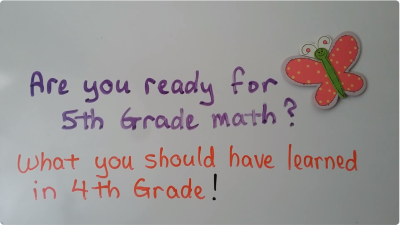 Are you ready for
5th Grade math?
What you should have learned
in 4th Grade!